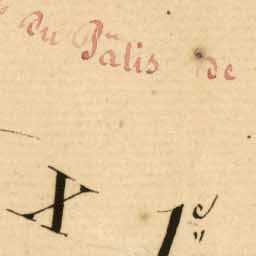 du Palis de
X 1e